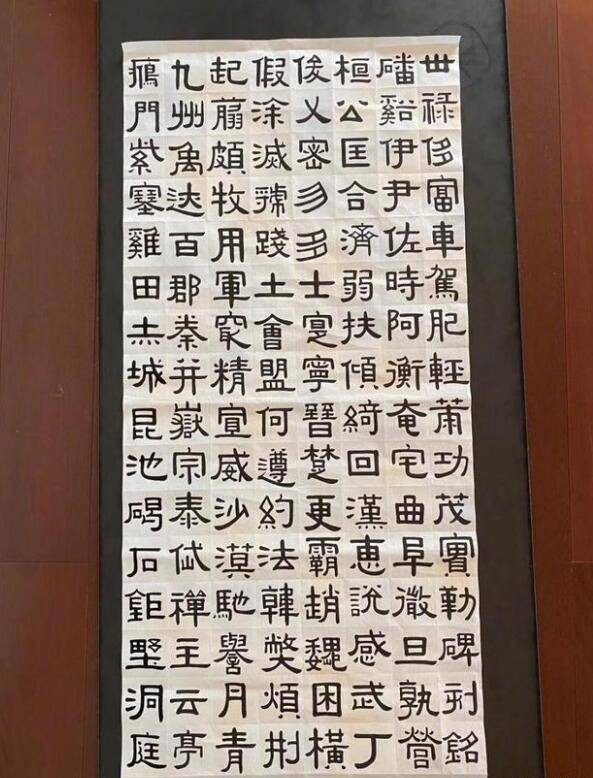 世祿侈富車駕肥輕策功茂實勒碑刻銘
磻谿伊尹佐時阿衡奄宅曲阜微旦孰營
桓公匡合濟弱扶傾綺回漢惠說感武丁
俊乂密勿多士寔寧晉楚更霸趙魏困橫
假涂滅虢踐土會盟何遵約法韓弊煩刑
起翦頗牧用軍㝡精宣威沙漠馳譽丹青
九州禹迹百郡秦并嶽宗泰岱禪主云亭
鴈門紫塞雞田赤城昆池碣石鉅野洞庭